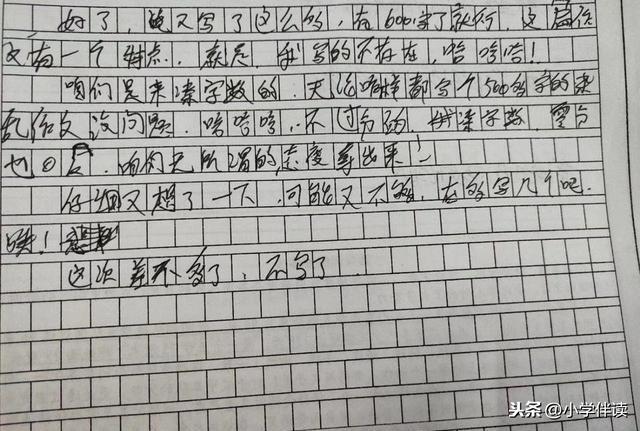 好了,又写了这么多,在600字了就行,这篇作
文有一个特点,就是,我写的不存在,哈哈哈!
咱们是来凑字数的,无论咱样都写个500多字的杂
乱给文没问题,哈哈哈,不过分的,拼凑字数,零分
也,咱有无所谓的态度拿出来!
仔细又想了一下,可能又不够,在多写几个吧.
哦!
这次差不多了,不写了.
头条@小学伴读